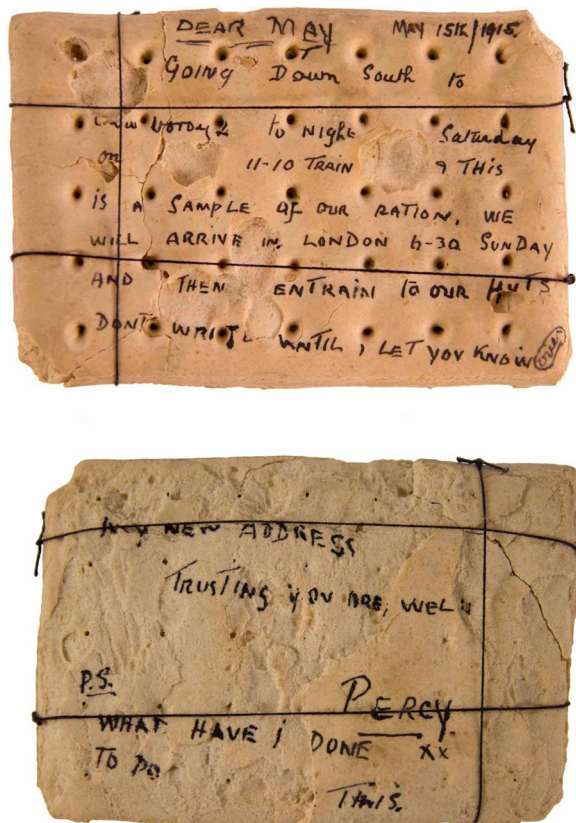 DEAR MAY MAY 15th/1915.
GOING DOWN SOUTH to
to NIGHT Saturday
on 11-10 TRAIN & THIS
is A SAMPLE OF OUR RATION, WE
WILL ARRIVE IN LONDON 6-30 SUNDAY
AND THEN ENTRAIN to OUR HUTS
DONT WRITE UNTIL i LET YOU KNOW over
MY NEW ADDRESS
TRUSTING YOU ARE, WELL
P.S. PERCY
WHAT HAVE i DONE xx
TO DO
THIS.